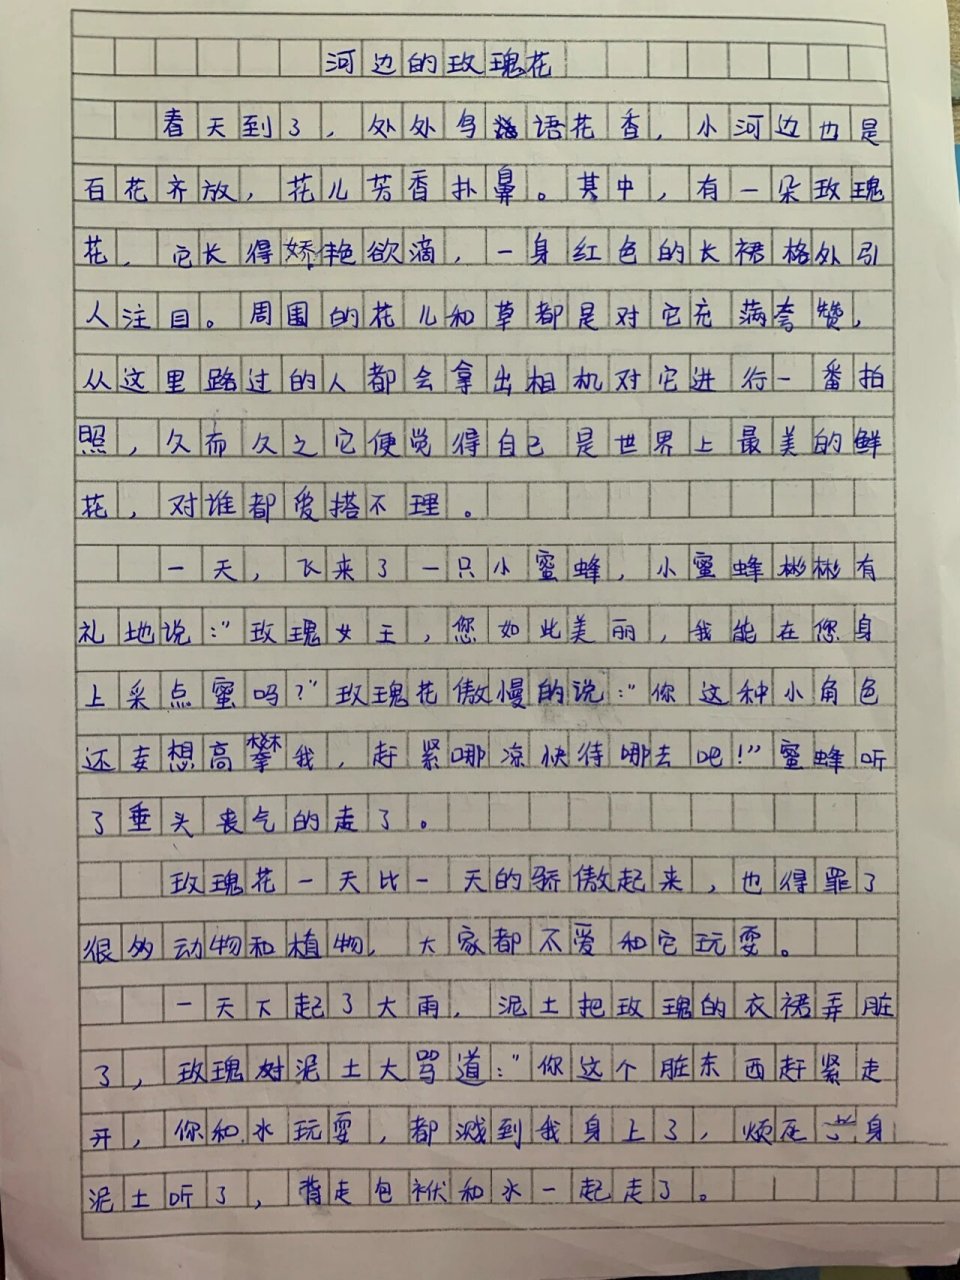 河边的玫瑰花
春天到了，处处鸟语花香，小河边也是
百花齐放，花儿芳香扑鼻。其中，有一朵玫瑰
花，它长得娇艳欲滴，一身红色的长裙格外引
人注目。周围的花儿和草都是对它充满夸赞，
从这里路过的人都会拿出相机对它进行一番拍
照，久而久之它便觉得自己是世界上最美的鲜
花，对谁都爱搭不理。
一天，飞来了一只小蜜蜂，小蜜蜂彬彬有
礼地说：“玫瑰女王，您如此美丽，我能在您身
上采点蜜吗？”玫瑰花傲慢的说：“你这种小角色
还妄想高攀我，赶紧哪凉快待哪去吧！”蜜蜂听
了垂头丧气的走了。
玫瑰花一天比一天的骄傲起来，也得罪了
很多动物和植物，大家都不爱和它玩耍。
一天下起了大雨，泥土把玫瑰的衣裙弄脏
了，玫瑰对泥土大骂道：“你这个脏东西赶紧走
开，你和水玩耍，都溅到我身上了，烦死
泥土听了，背走包袱和水一起走了。